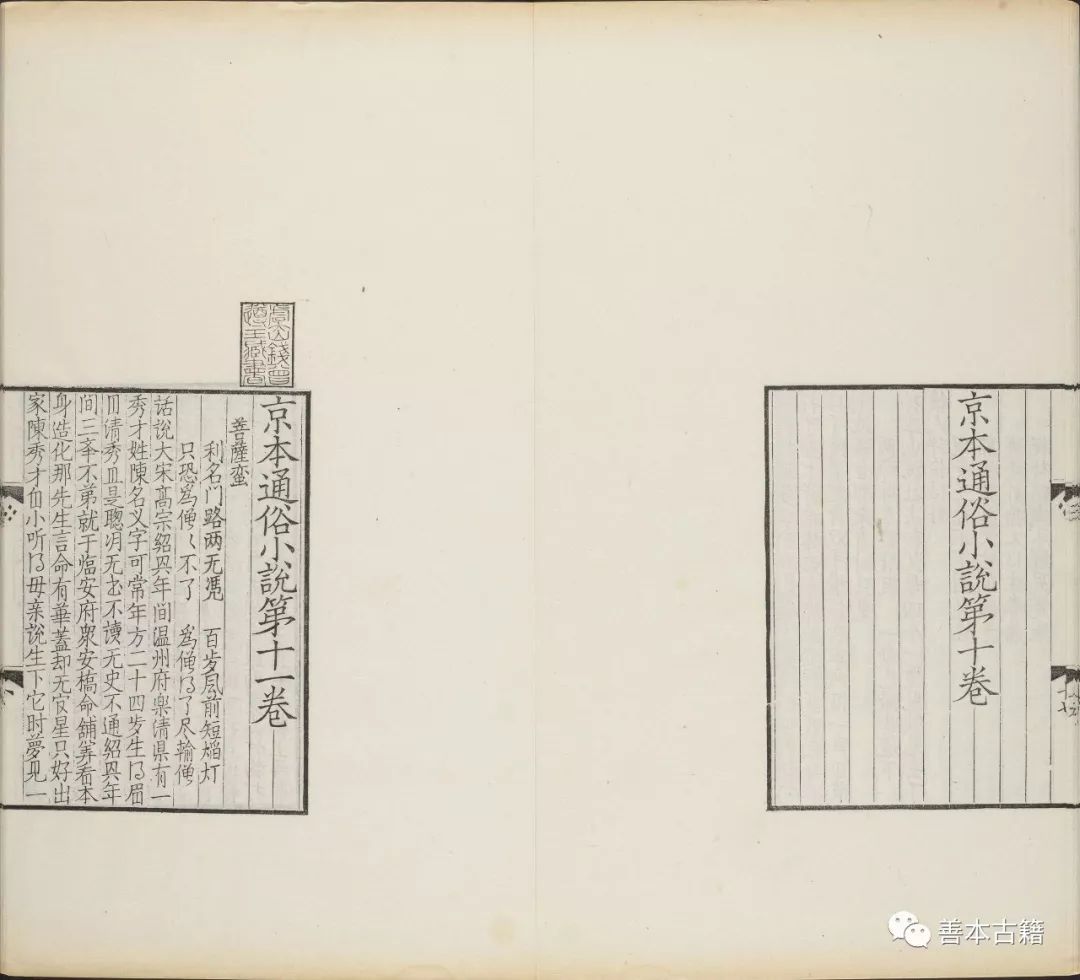 京本通俗小說第十卷
京本通俗小說第十一卷
虞山錢曾遵王藏書
菩薩蛮
利名门路两无凴　百步風前短焰灯
只恐為僧〻不了　為僧得了尽輸僧
話說大宋高宗紹兴年间温州府樂清県有一
秀才姓陳名义字可常年方二十四岁生得眉
目清秀且是聰明无书不讀无史不通紹兴年
间三举不弟就于临安府眾安橋命舖筭看本
身造化那先生言命有華蓋却无官星只好出
家陳秀才自小听得母亲說生下它时夢見一
善本古籍